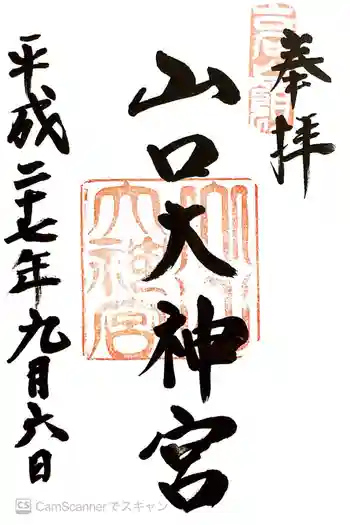 奉拝
山口大神宮
平成二十七年九月六日
CS CamScannerでスキャン